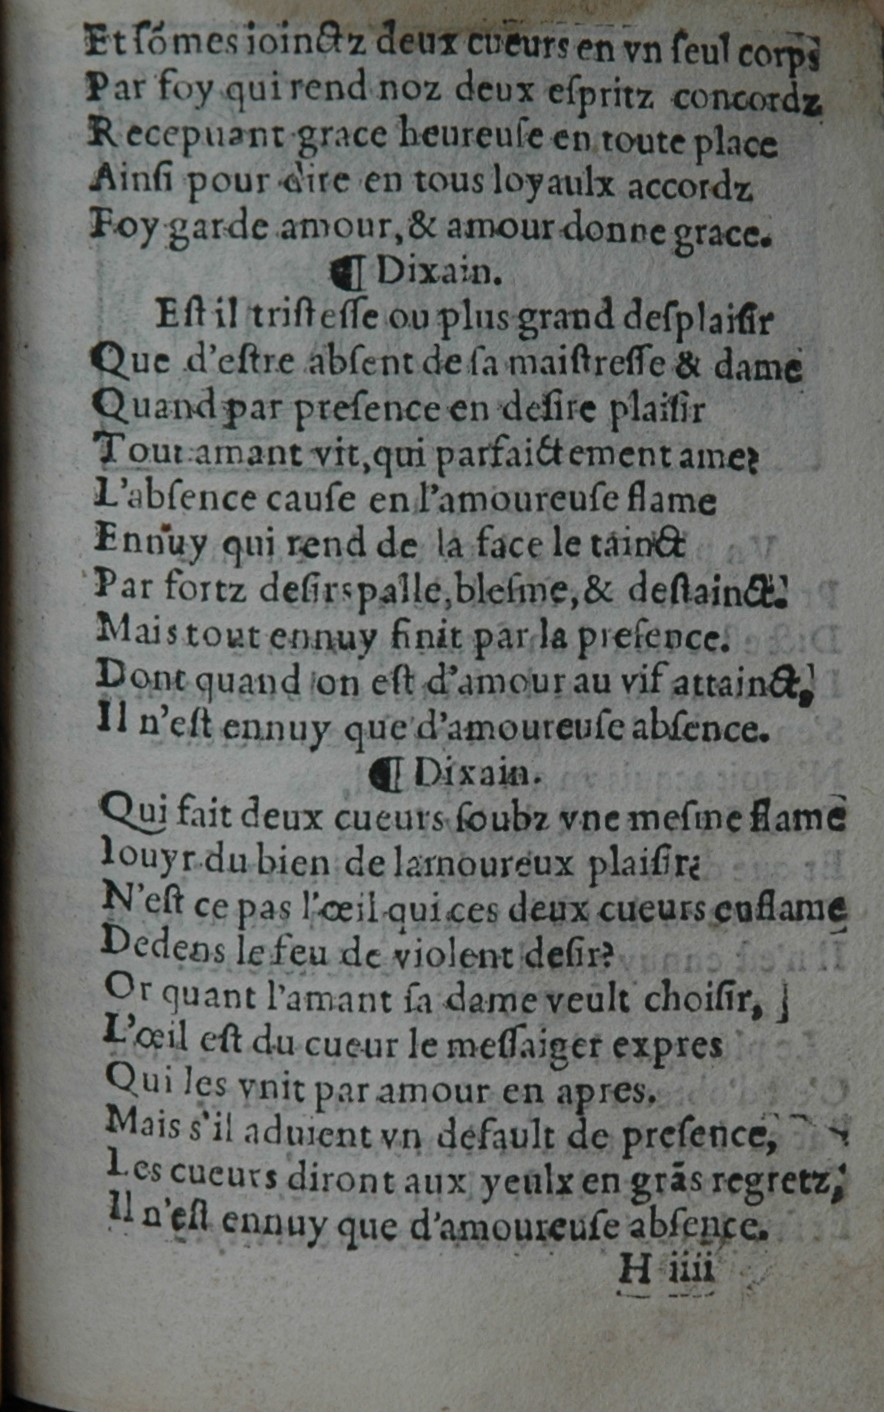 Et sõmes ioinctz deux cueurs en vn ſeul corps
Par foy qui rend noz deux eſpritz concordz
Recepuant grace heureuſe en toute place
Ainſi pour dire en tous loyaulx accordz
Foy garde amour, & amour donne grace.
¶ Dixain.
Eſt il triſteſſe ou plus grand deſplaiſir
Que d'eſtre abſent de ſa maiſtreſſe & dame
Quand par preſence en deſire plaiſir
Tout amant vit, qui parfaictement ame?
L'abſence cauſe en l'amoureuſe flame
Ennuy qui rend de la face le tainct
Par fortz deſirs palle, bleſme, & deſtainct.
Mais tout ennuy finit par la preſence.
Dont quand on eſt d'amour au vif attainct,
Il n'eſt ennuy que d'amoureuſe abſence.
¶ Dixain.
Qui fait deux cueurs ſoubz vne meſme flame
Iouyr du bien de lamoureux plaiſir?
N'eſt ce pas l'œil qui ces deux cueurs enflame
Dedens le feu de violent deſir?
Or quant l'amant ſa dame veult choiſir,
L'œil eſt du cueur le meſſaiger expres
Qui les vnit par amour en apres.
Mais s'il aduient vn default de preſence,
Les cueurs diront aux yeulx en grãs regretz,
Il n'eſt ennuy que d'amoureuſe abſence.
H iiii